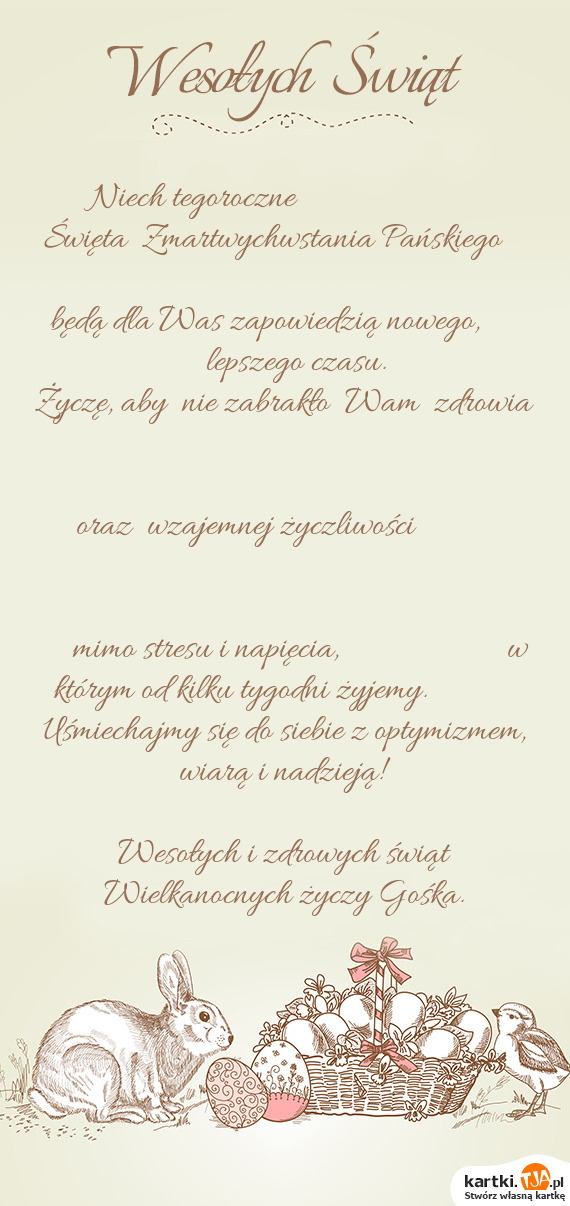 Wesołych Świąt
Niech tegoroczne
Święta Zmartwychwstania Pańskiego
będą dla Was zapowiedzią nowego,
lepszego czasu.
Życzę, aby nie zabrakło Wam zdrowia
oraz wzajemnej życzliwości
mimo stresu i napięcia, w
którym od kilku tygodni żyjemy.
Uśmiechajmy się do siebie z optymizmem,
wiarą i nadzieją!
Wesołych i zdrowych świąt
Wielkanocnych życzy Gośka.
kartki.TJA.pl
Stwórz własną kartkę